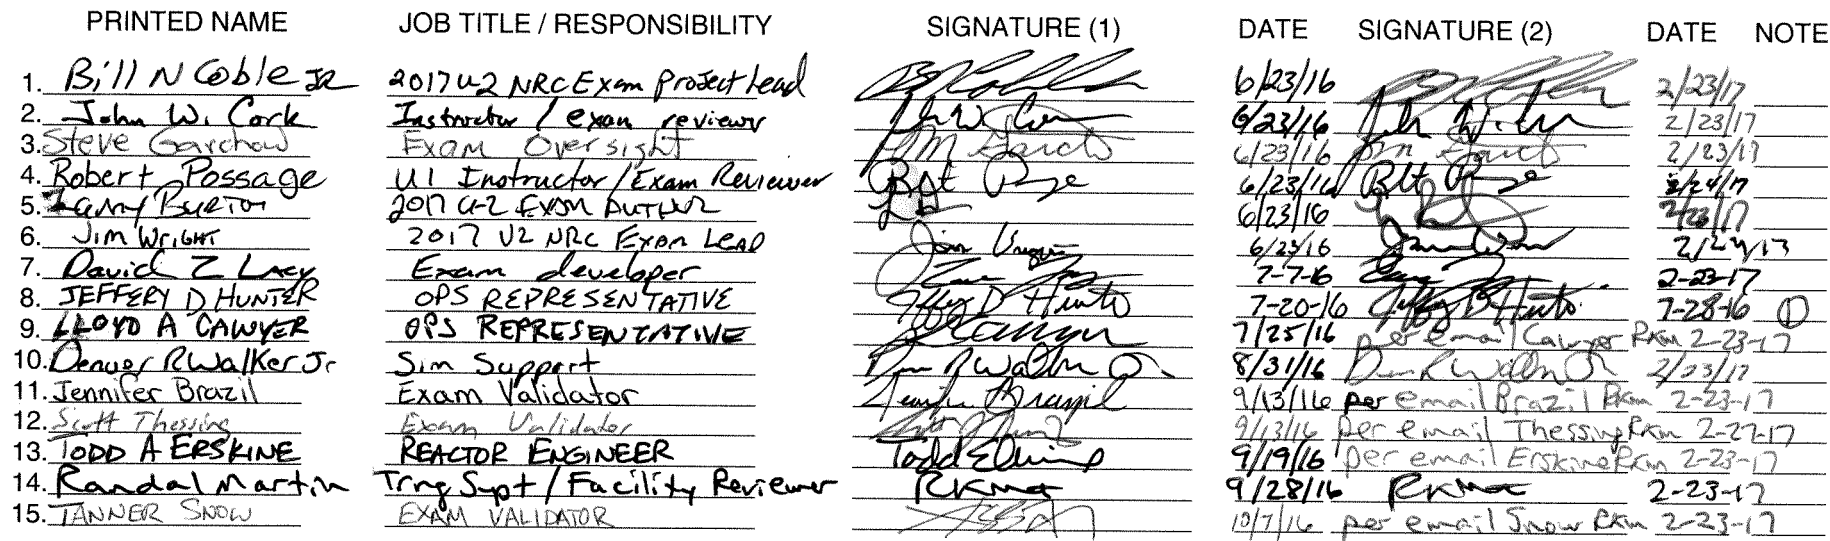 PRINTED NAME JOB TITLE / RESPONSIBILITY SIGNATURE (1) DATE SIGNATURE (2) DATE NOTE
1. Bill N Coble JR 2017 U-2 NRC Exam Project Lead 6/23/16 2/23/17
2. John W. Cork Instructor / exam reviewer 6/23/16 2/23/17
3. Steve Garchow Exam Oversight 6/23/16 2/23/17
4. Robert Possage U1 Instructor / Exam Reviewer 6/23/16 2/24/17
5. Larry Burton 2017 U-2 EXAM AUTHOR 6/23/16 2/23/17
6. Jim Wright 2017 U2 NRC Exam Lead Jim Wright 6/23/16 2/24/17
7. David Z Lacy Exam developer 7-7-16 2-23-17
8. JEFFERY D HUNTER OPS REPRESENTATIVE Jeffery D Hunter 7-20-16 Jeffery D Hunter 7-28-16 1
9. LLOYD A CAWYER OPS REPRESENTATIVE 7/25/16 per email Cawyer RKM 2-23-17
10. Denver R Walker Jr Sim Support 8/31/16 2/23/17
11. Jennifer Brazil Exam Validator Jennifer Brazil 9/13/16 per email Brazil RKM 2-23-17
12. Scott Thessing Exam Validator 9/13/16 per email Thessing RKM 2-27-17
13. TODD A ERSKINE REACTOR ENGINEER Todd Erskine 9/19/16 per email Erskine RKM 2-23-17
14. Randal Martin Trng Supt / Facility Reviewer 9/28/16 2-23-17
15. TANNER SNOW EXAM VALIDATOR 10/7/16 per email Snow RKM 2-23-17